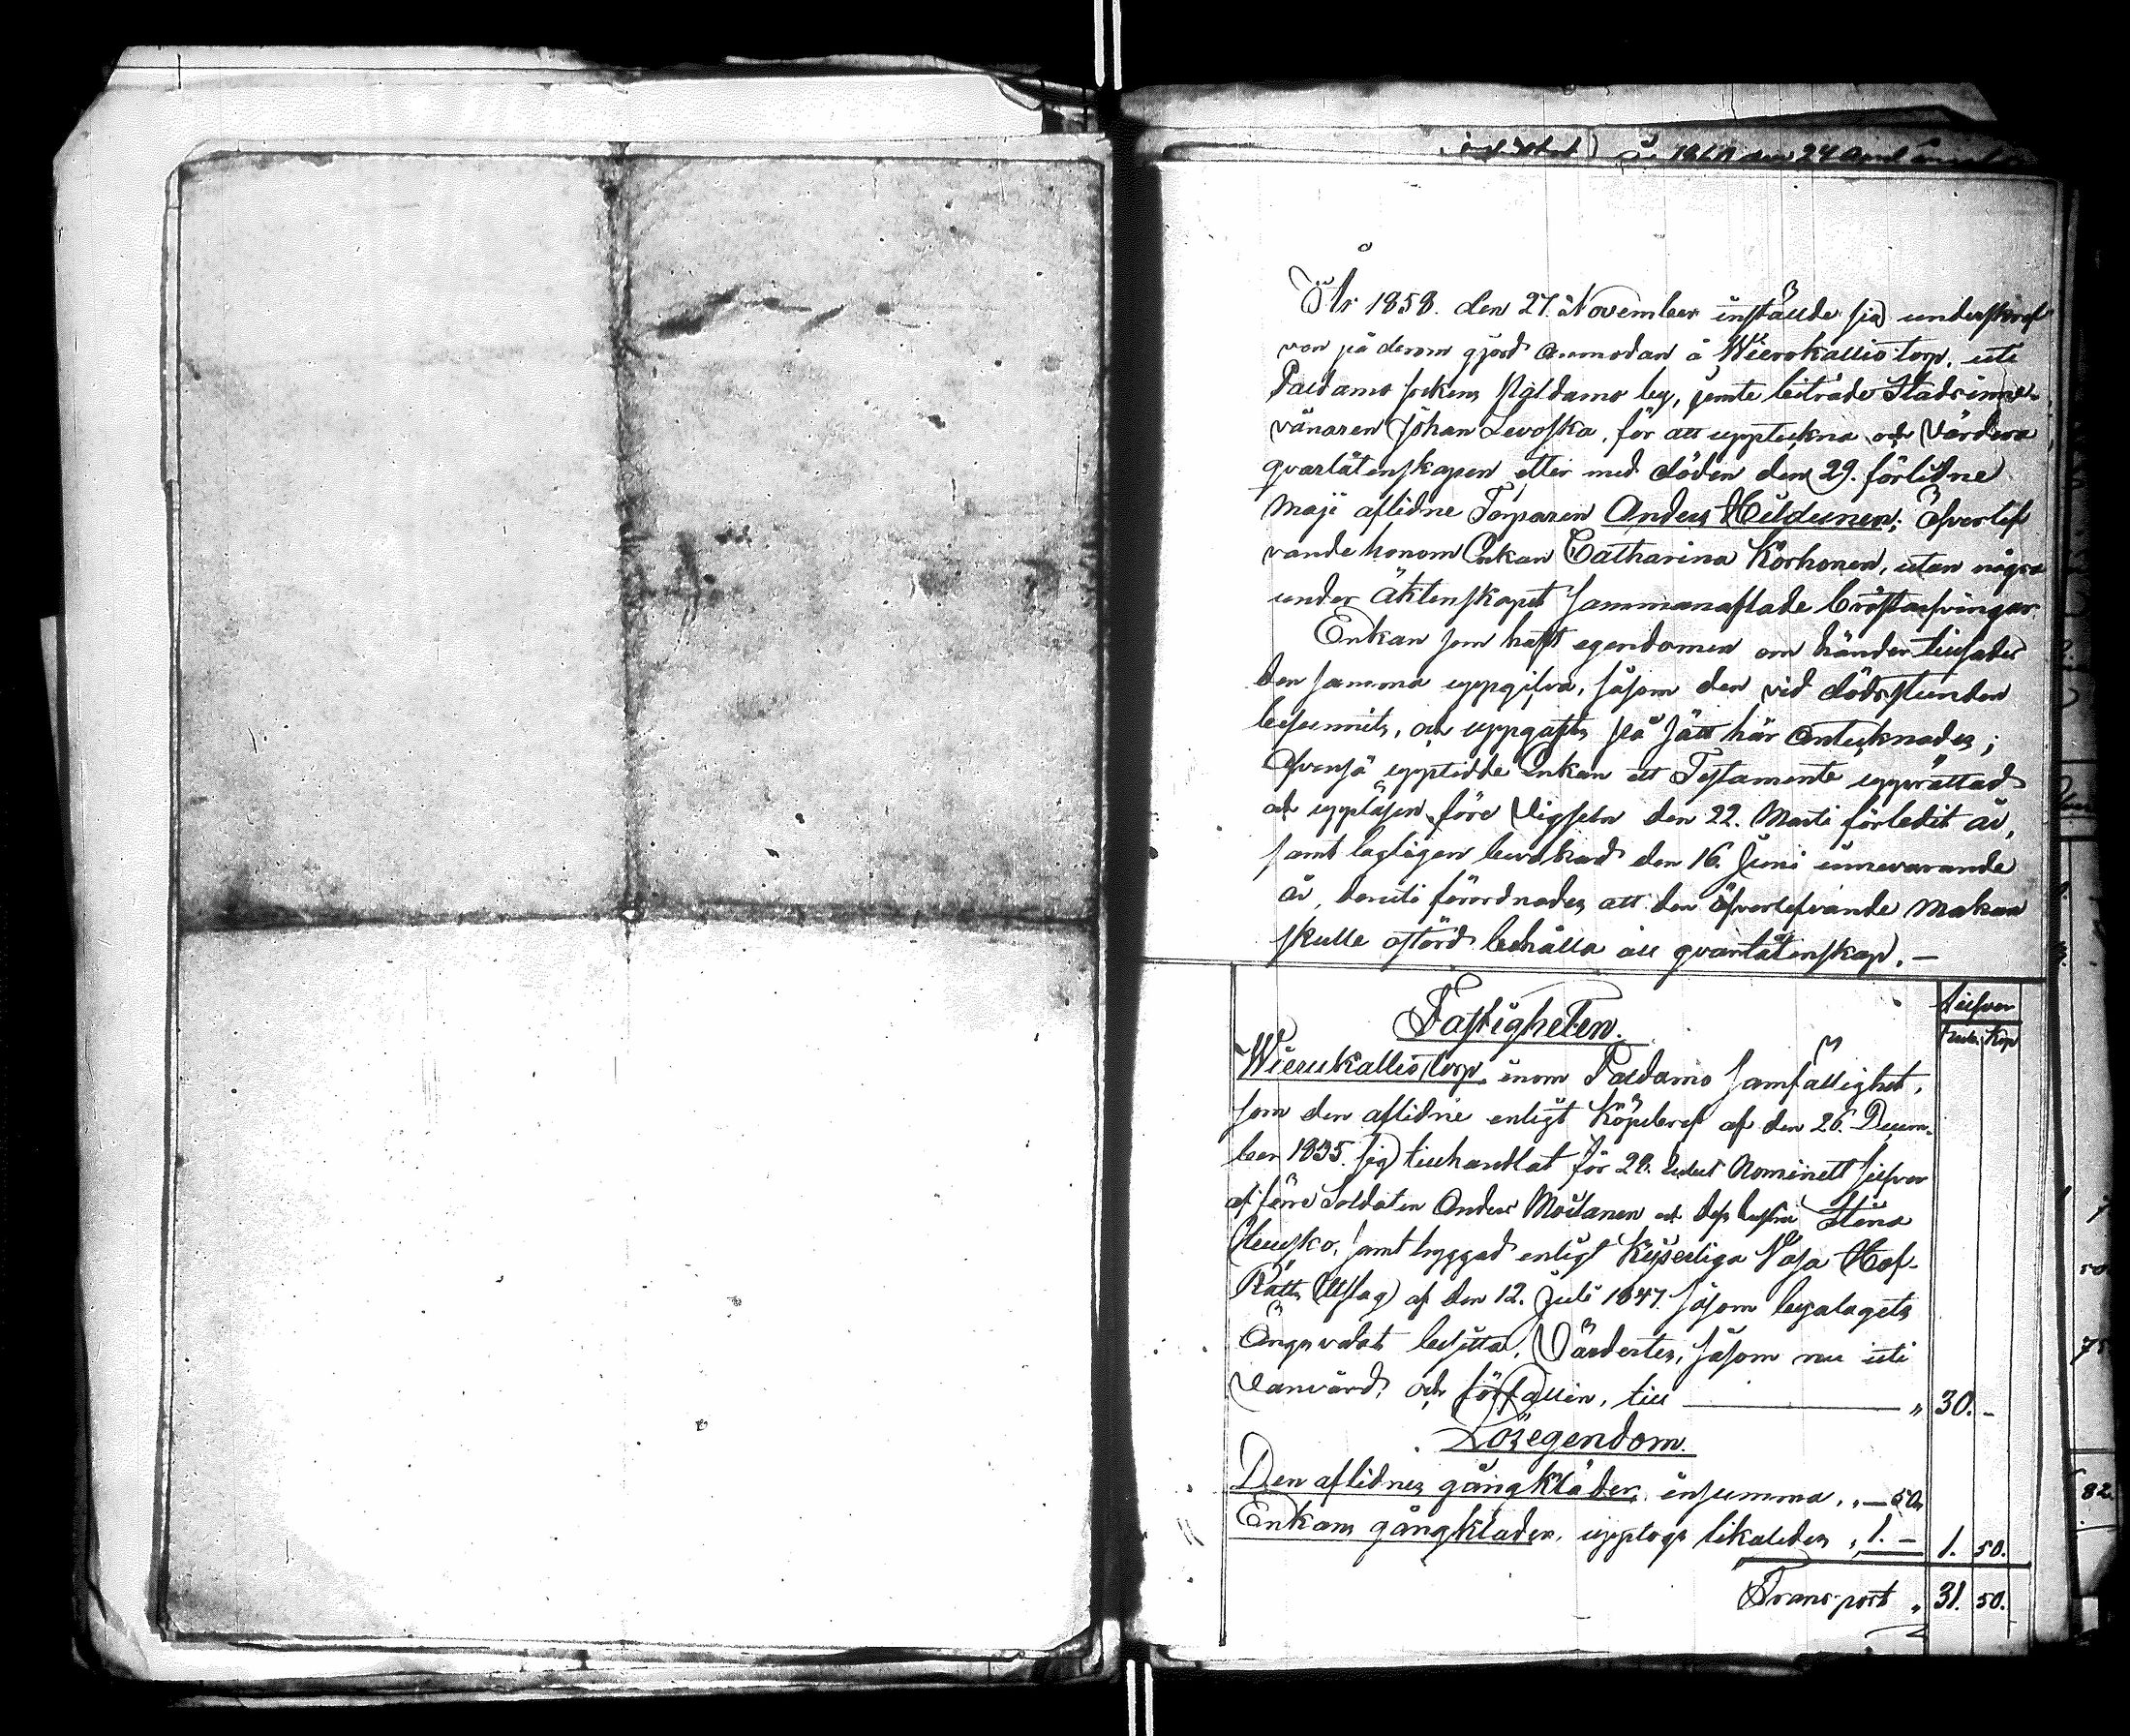 År 1858. den 27. November inställde sig underskref
ven på derom gjord anmodan å Wierukallio torp, uti
Paldamo sokens Paldamo by, jemte biträde Stadsinne-
vånaren Johan Levoska, för att uppteckna och Värdera
qvarlåtenskapen efter med döden den 29. förlidne
Maji aflidne Torparen Anders Hildunen; Öfverlef
vande honom Enkan Catharina Korhonen, utan några
under äktenskapet sammanaflade bröstarfvingar.
Enkan som haft egendomen om händer tillsades
den samma uppgifva, såsom den vid dödsstunden
befunnits, och uppgafts på sätt här antecknades;
Äfvenså upptedde Enkan ett Testamente upprättad
och uppläsen före Vigseln den 22. Marti förledit år,
samt lagligen bevakad den 16. Juni innevarande
år, deruti förordnades att den öfverlefvande makan
skulle ostörd behålla all qvarlåtenskap. —
Silfver
Fastigheten.
Rub. Kop
Wierukallio torp, inom Paldamo samfällighet,
som den aflidne enligt Köpebref af den 26. Decem-
ber 1835. sig tillhandlat för 28. Nominelt silfver
af förre Soldaten Anders Moilanen och dess hustru Stina
samt byggad enligt Kejserliga Vasa Hof-
Rätts Utslag af den 12. Juli 1847. såsom
besitta, Värdertes, såsom nu uti
Vanvård och förfallen, till — " 30. -
Lösegendom.
Den aflidnes gångkläder, insumma, " — 50.
Enkans gångkläder, upptogs likaledes " 1. - 1. 50.
Transport " 31. 50.